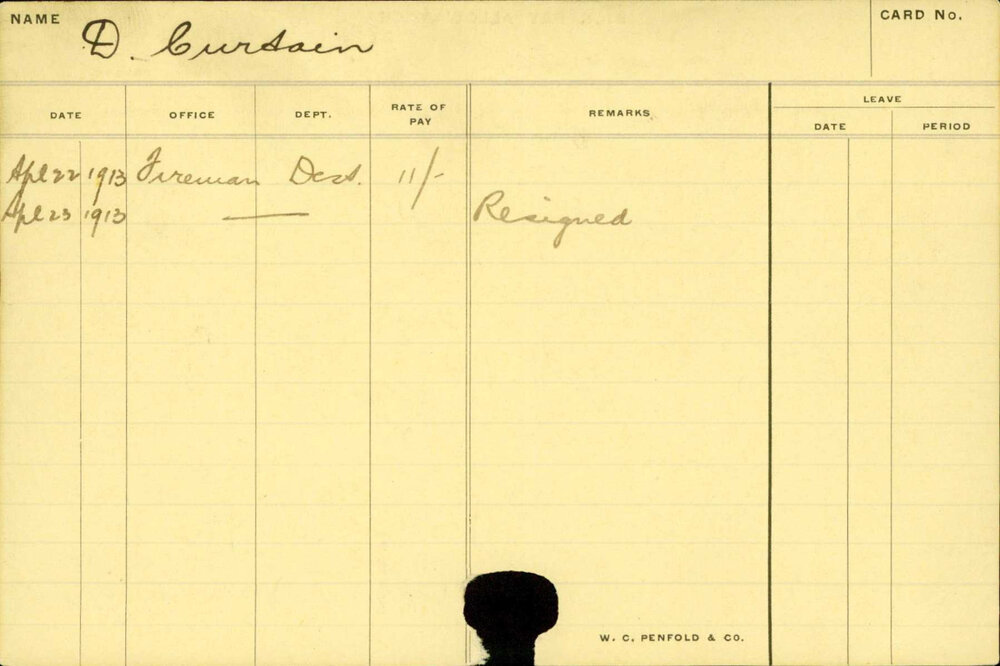 NAME D. Curtain CARD No.
DATE OFFICE DEPT. RATE OF PAY REMARKS LEAVE
DATE PERIOD
Apl 22 1913 Fireman Dest. 11/-
Apl 23 1913 — Resigned
W. C. PENFOLD & CO.